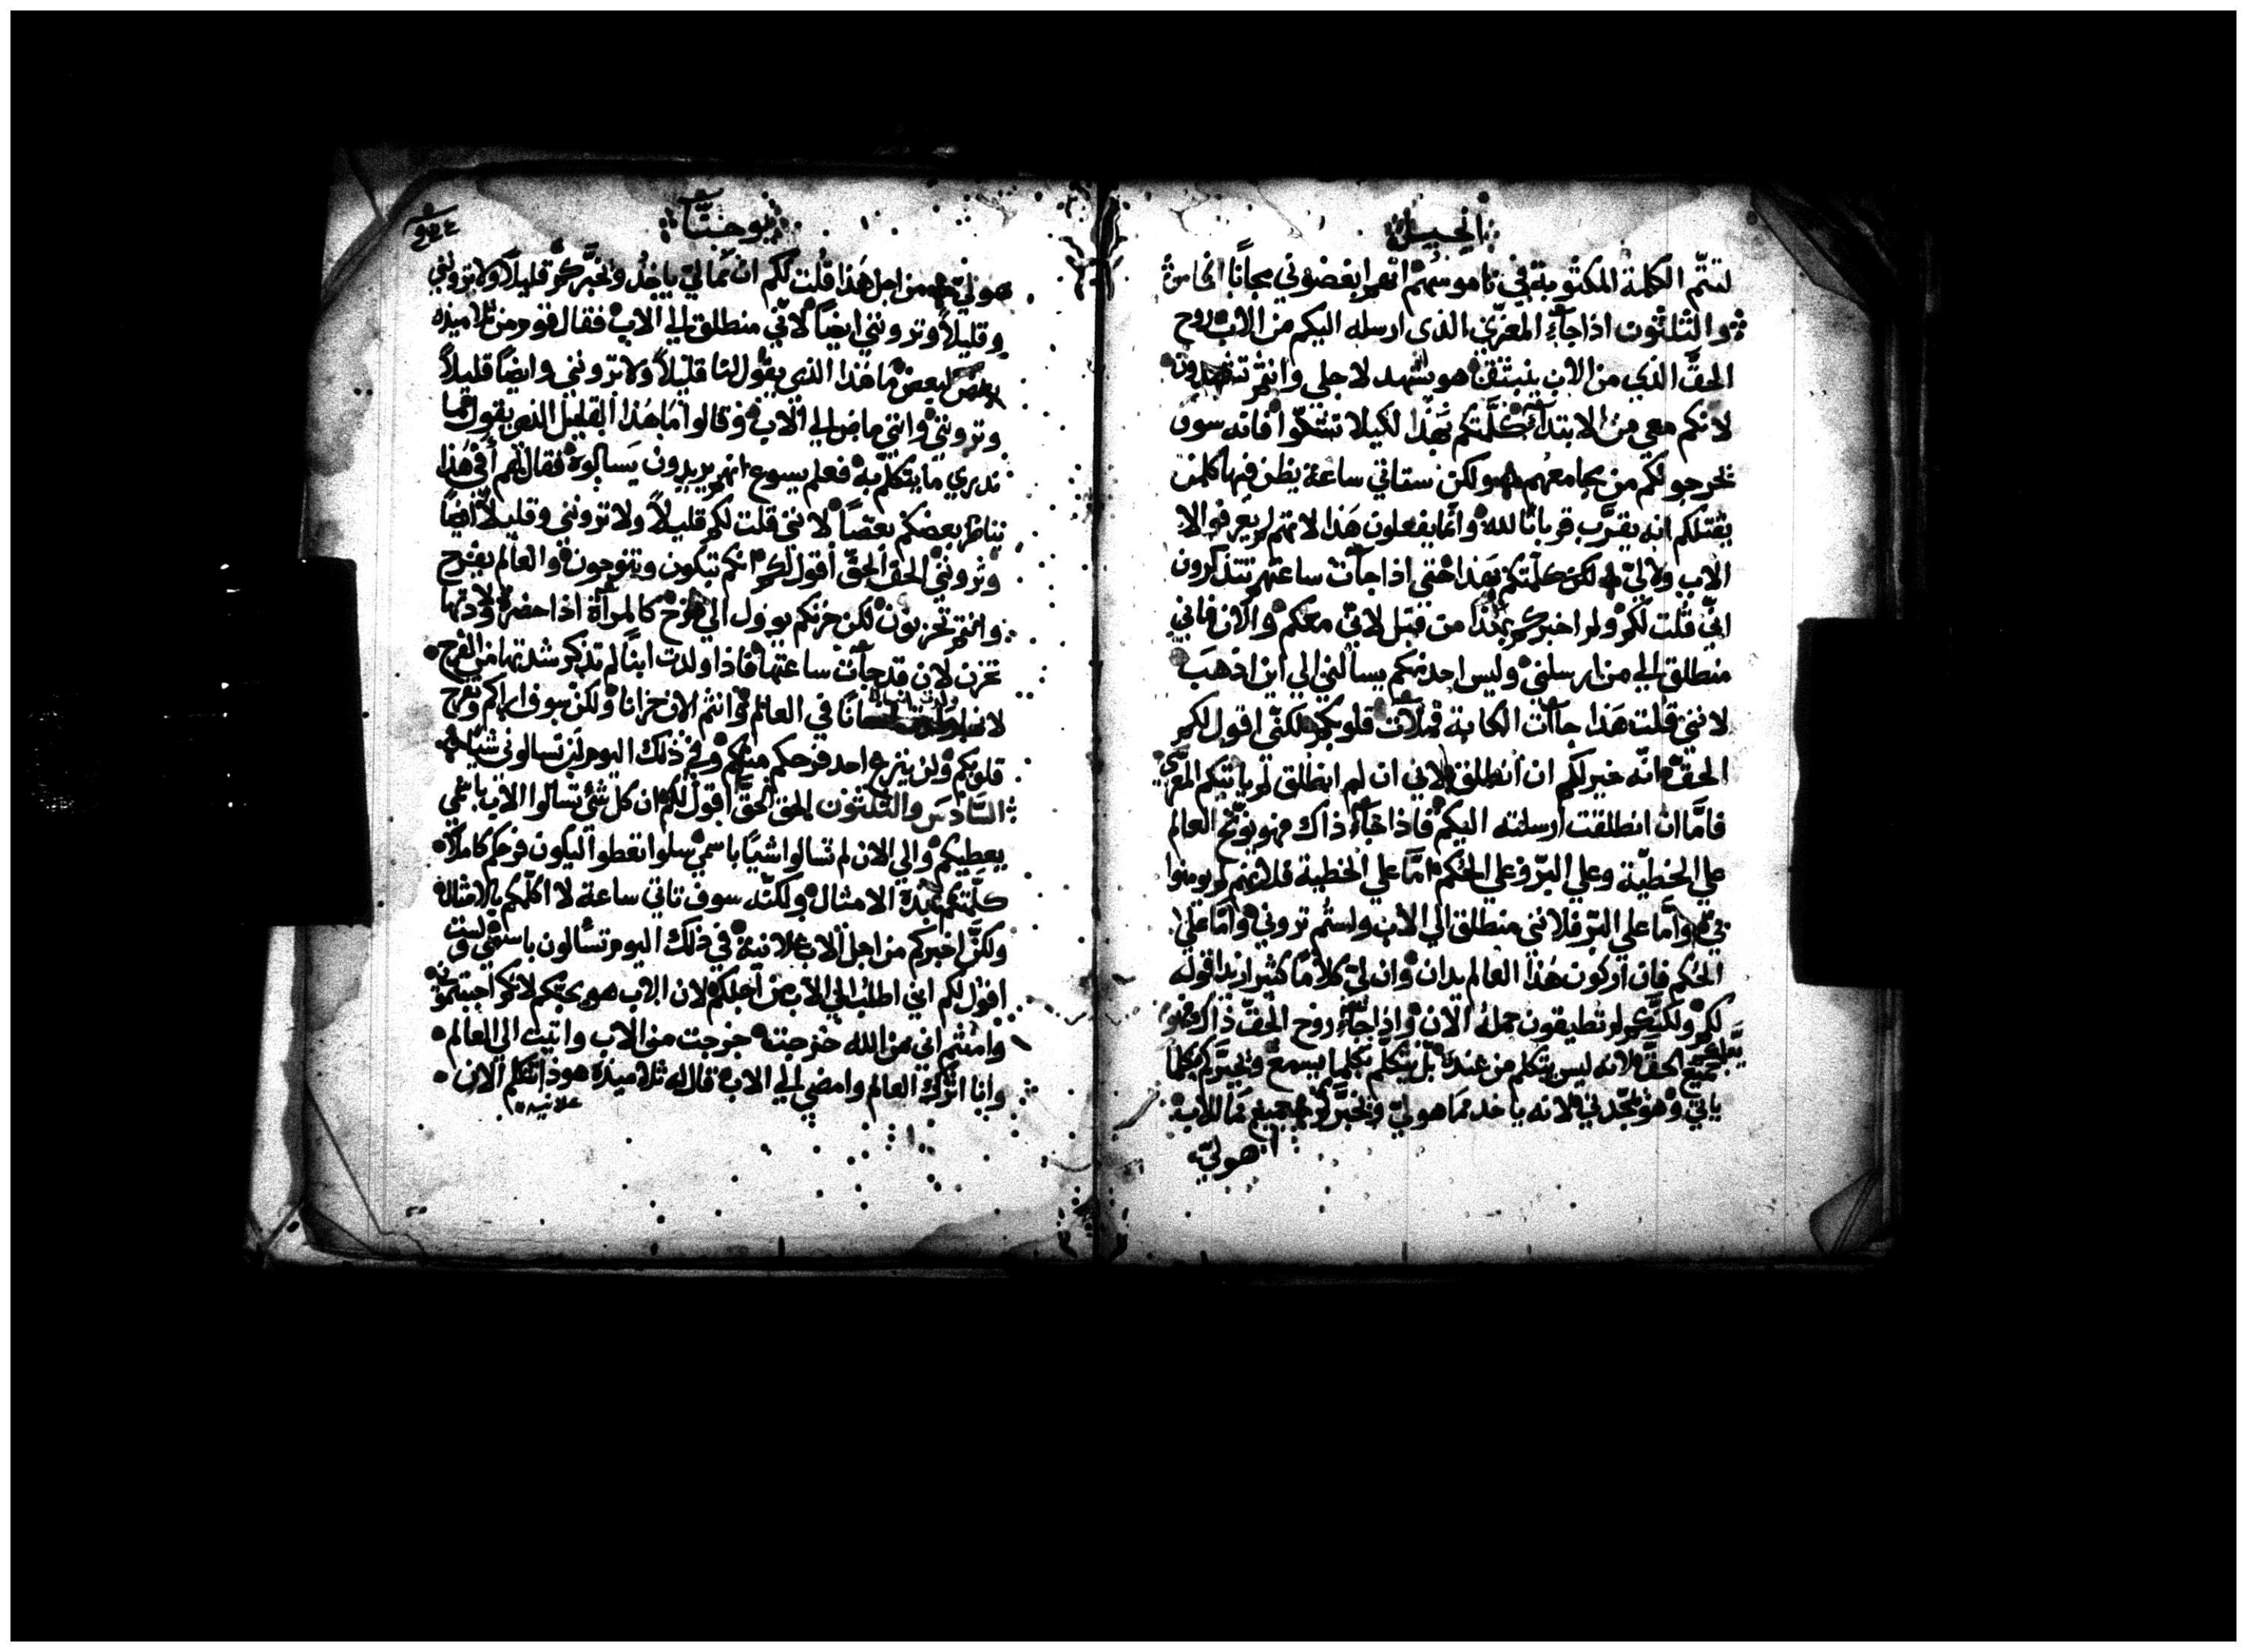 انجيل
لتتمّ الكلمة المكتوبة في ناموسهم انهم ابغضوني مجانًا الخامس
والثلثون اذا جآء المعزّي الذي ارسله اليكم من الاب روح
الحقّ الذي من الاب ينبثق هو يشهد لاجلي وانتم تشهدون
لانكم معي من الابتدآء كلّمتكم بهذا لكيلا تشكّوا فانه سوف
يخرجونكم من مجامعهم ولكن ستاتي ساعة يظن فيها كلمن
يقتلكم انه يقرّب قربانًا لله وانما يفعلون هذا لانهم لم يعرفوا الا
الاب ولا لي لكن كلّمتكم بهذا حتي اذا جآت ساعتهم تتذكرون
انّي قلت لكم ولم اخبركم بهذا من قبل لانّي معكم والان فاني
منطلق الي من ارسلني وليس احد منكم يسالني الي اين اذهب
لانني قلت هذا جآت الكابة فملآت قلوبكم لكنّي اقول لكم
الحقّ انّه خير لكم ان انطلق لاني ان لم انطلق لم ياتيكم المعزّي
فامّا ان انطلقت ارسلته اليكم فاذا جآء ذاك فهو يوبّخ العالم
علي الخطيّة وعلي البرّ وعلي الحكم امّا علي الخطية فلانهم لم يومنوا
بي وامّا علي البرّ فلانني منطلق الي الاب ولستم تروني وامّا علي
الحكم فان اركون هذا العالم يدان وان لي كلامًا كثير اريد اقوله
لكم ولكنّكم لم تطيقون حمله الان واذا جآء روح الحقّ ذاك فهو
يعلّمكم
جميع الحقّ لانه ليس يتكلم من عنده بل يتكلّم بكلما يسمع ويخبركم بكلما
ياتي وهو يمجّدني لانه ياخد ممّا هو لي ويخبركم جميع ما للاب
هو لي
يوحنّا
هو لي من اجل هذا قلت لكم ان ممّا لي ياخذ ويخبّركم قليلاً ولا تروني
وقليلاً وترونني ايضًا لانّي منطلق الي الاب فقال قوم من تلاميذه
بعض لبعض ما هذا الذي يقول لنا قليلاً ولا ترونني وايضًا قليلاً
وترونني وانني ماض الي الاب وقالوا ما هذا القليل الذي يقول ما
ندري ما يتكلّم به فعلم يسوع انهم يريدون يسالوه فقال لهم أفي هذا
يناظر بعضكم بعضًا لانني قلت لكم قليلاً ولا ترونني وقليلاً ايضًا
وترونني الحقّ الحقّ أقول لكم انكم تبكون وتنوحون والعالم يفرح
وانتم تحزنون لكن حزنكم يوول الي فرح كالمرأة اذا حضرة ولادتها
تحزن لان قد جآت ساعتها فاذا ولدت ابنًا لم تذكر شدتها من الفرح
لانها ولدت انسانًا في العالم وانتم الان حزانا ولكن سوف اراكم وتفرح
قلوبكم ولن ينزع احد فرحكم منكم وفي ذلك اليوم لن تسالوني شيًا
السّادس والثلثون الحق الحقّ اقول لكم ان كل شي تسالوا الاب باسمي
يعطيكم والي الان لم تسالوا شيًا باسمي سلوا تعطوا ليكون فرحكم كاملاً
كلّمتكم بهذه الامثال ولكنّه سوف تاتي ساعة لا اكلّمكم بالامثال
ولكنّي اخبركم من اجل الاب علانية في ذلك اليوم تسألون باسمي ولست
اقول لكم اني اطلب الي الاب من اجلكم لان الاب هو يحبكم لانكم احببتموني
وامنتم اني من الله خرجت خرجت من الاب واتيت الي العالم
وانا اترك العالم وامضي الي الاب قال له تلاميذه هوذا تتكلم الان
علانيه